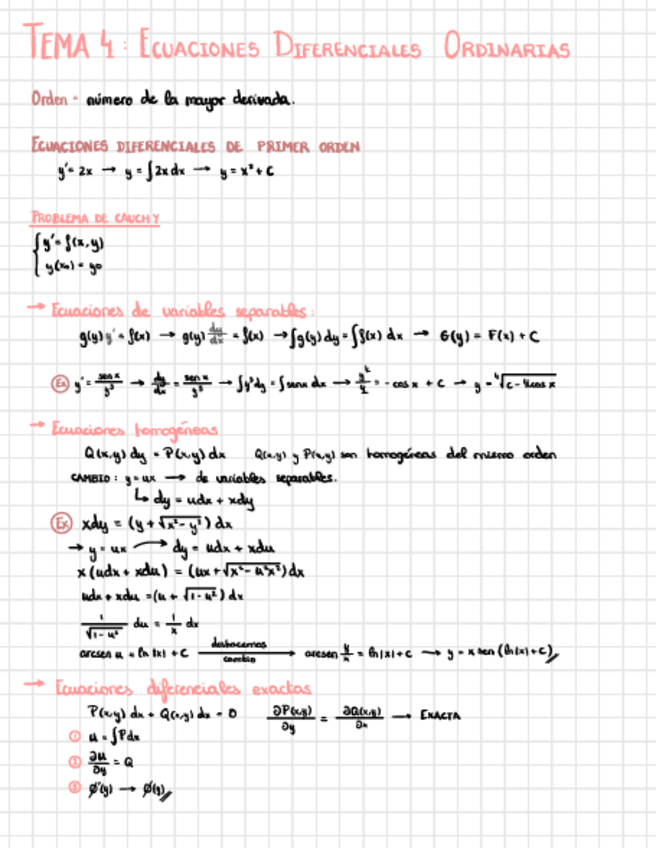 TEMA 4: ECUACIONES DIFERENCIALES ORDINARIAS
Orden - número de la mayor derivada.
ECUACIONES DIFERENCIALES DE PRIMER ORDEN
y' = 2x → y = ∫2x dx → y = x² + C
PROBLEMA DE CAUCHY
{ y' = f(x,y)
y(x₀) = y₀
→ Ecuaciones de variables separables:
g(y) y' = f(x) → g(y) dy/dx = f(x) → ∫g(y) dy = ∫f(x) dx → G(y) = F(x) + C
Ex y' = sen x / y³ → dy/dx = sen x / y³ → ∫y³dy = ∫senx dx → y⁴/4 = -cos x + C → y = ⁴√(C - 4cos x)
→ Ecuaciones homogéneas
Q(x,y) dy = P(x,y) dx Q(x,y) y P(x,y) son homogéneas del mismo orden
CAMBIO: y = ux → de variables separables.
↳ dy = udx + xdy
Ex xdy = (y + √(x² - y²)) dx
→ y = ux → dy = udx + xdu
x(udx + xdu) = (ux + √(x² - u²x²)) dx
udx + xdu = (u + √(1 - u²)) dx
1/√(1 - u²) du = 1/x dx
arcsen u = ln|x| + C deshacemos cambio → arcsen y/x = ln|x| + C → y = x sen(ln|x| + C)
→ Ecuaciones diferenciales exactas
P(x,y) dx + Q(x,y) dx = 0 ∂P(x,y)/∂y = ∂Q(x,y)/∂x → EXACTA
① u = ∫Pdx
② ∂u/∂y = Q
③ ø'(y) → ø(y)